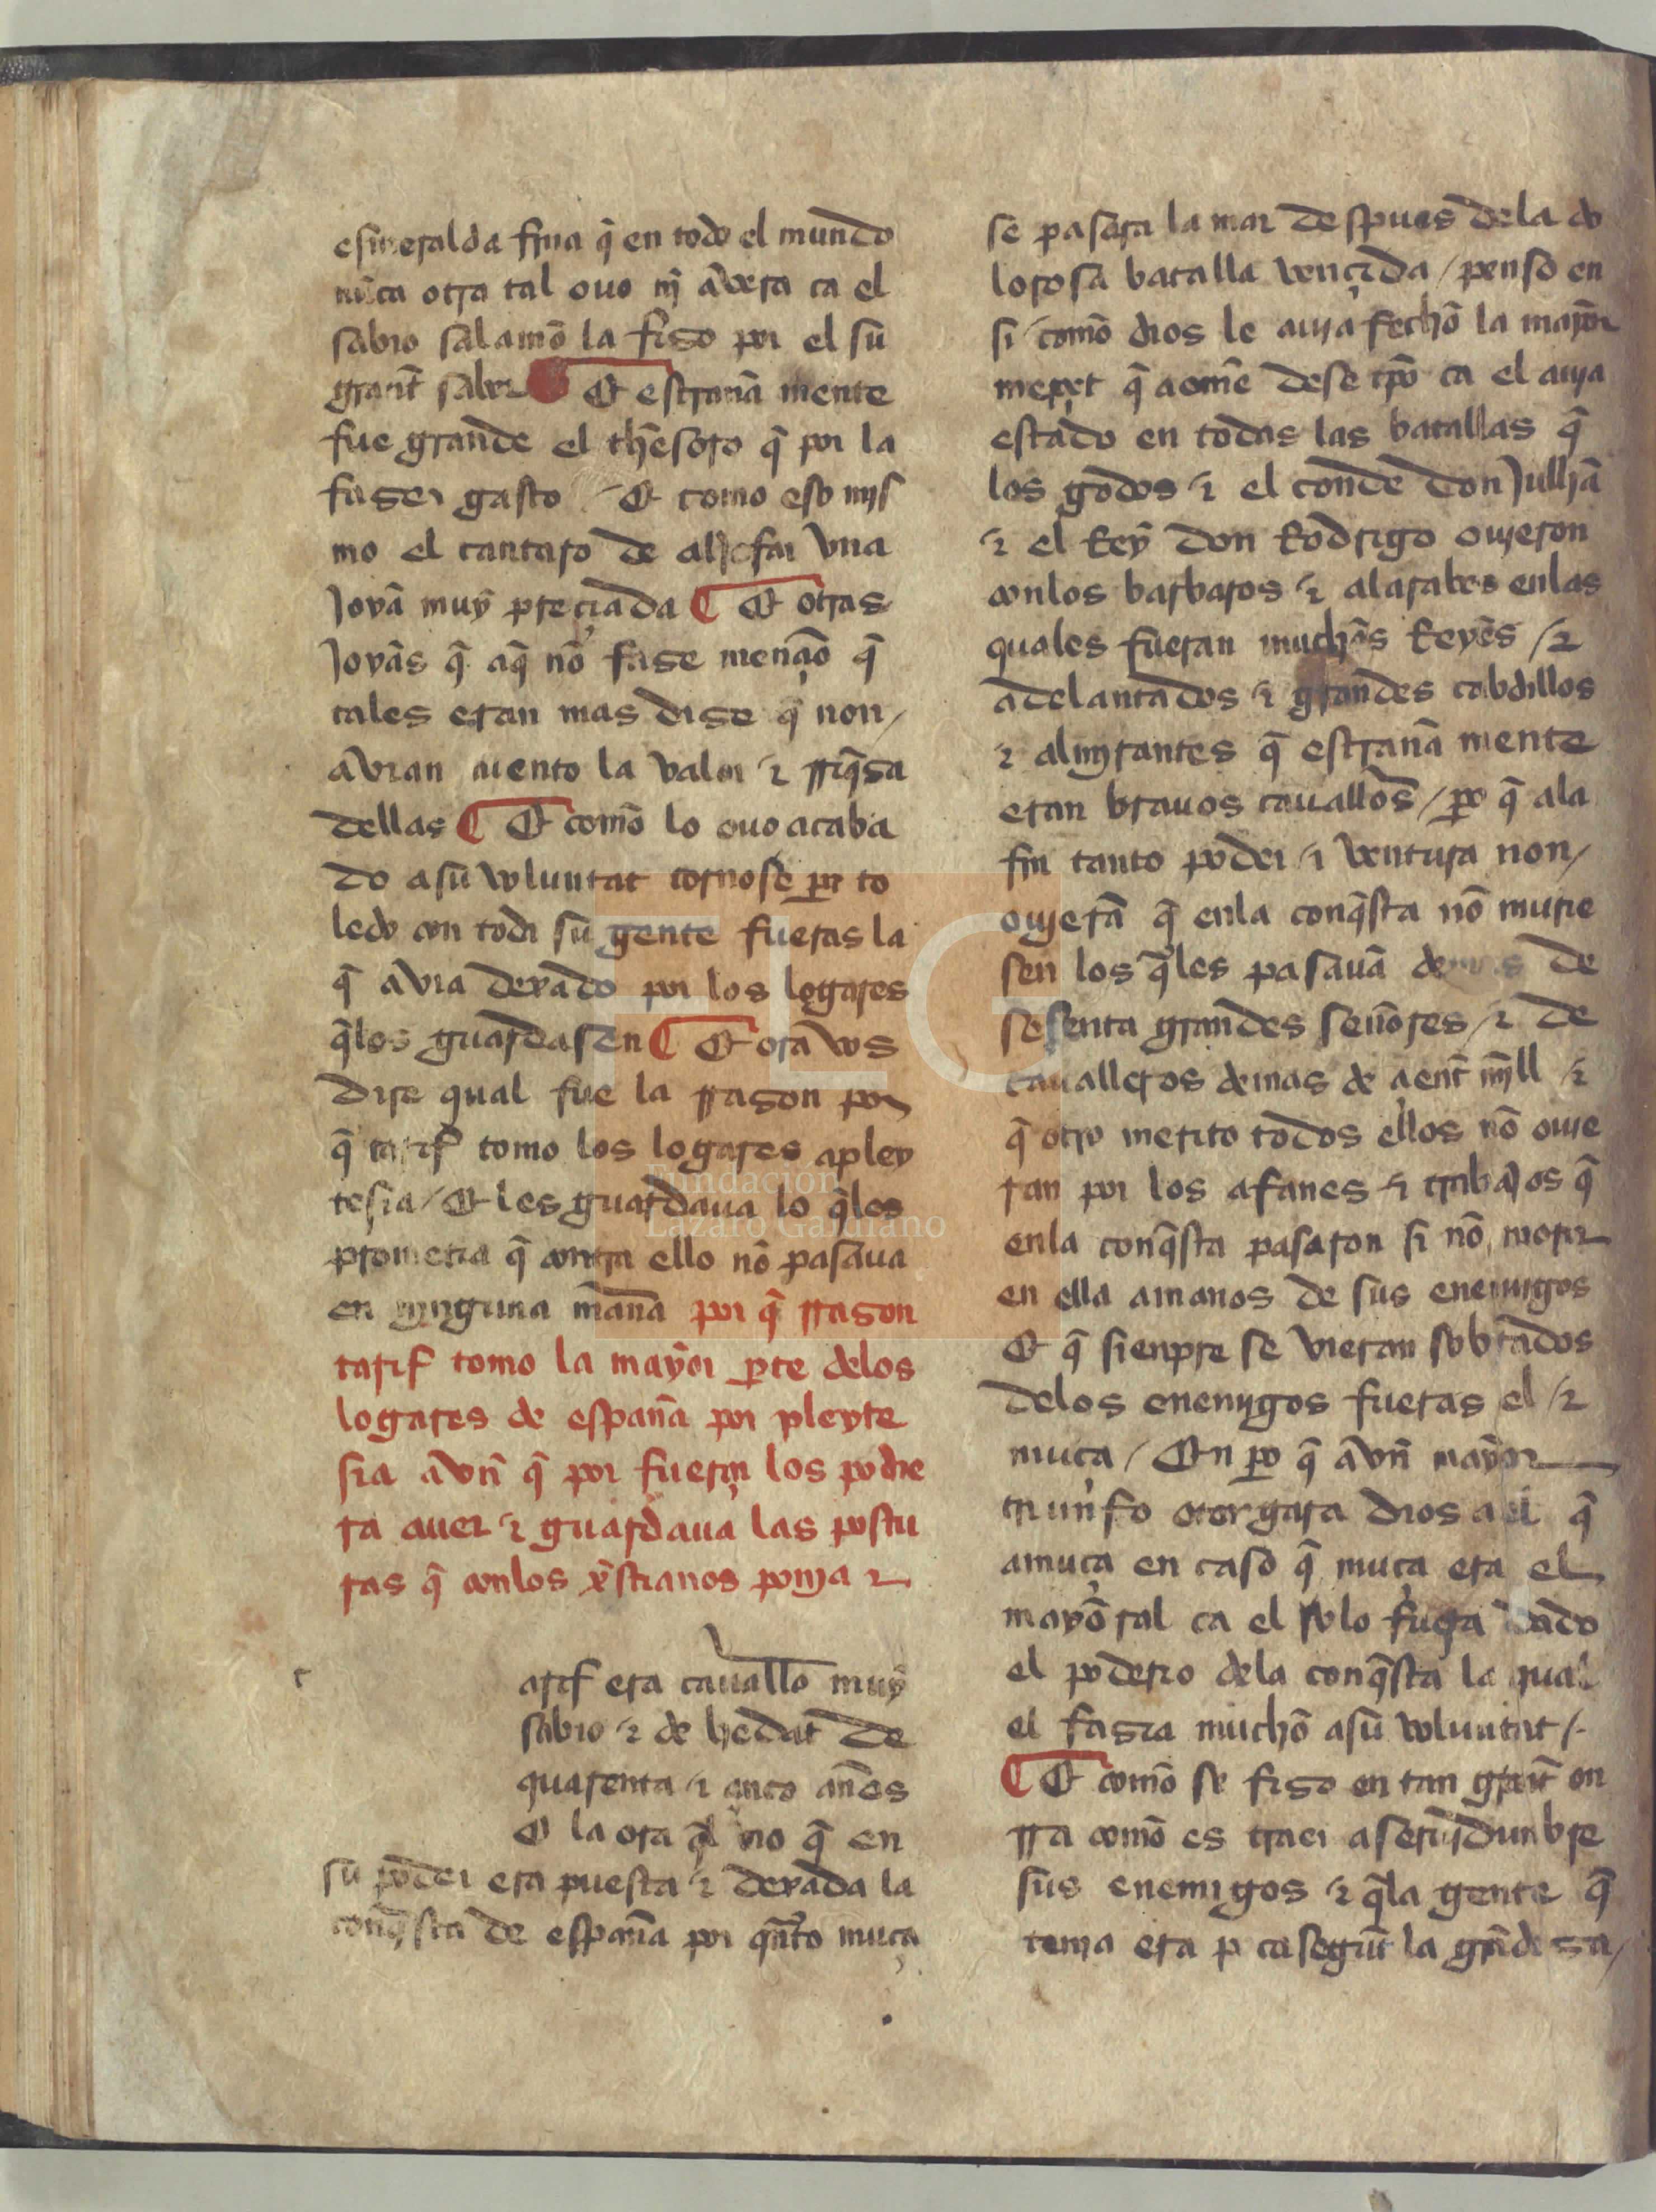 esmeralda fina q̃ en todo el mundo
nũca otra tal ouo nj̃ aṽera ca el
sabio salamõ la fiso por el su
grant̃ saber Et estranã mente
fue grande el thẽsoro q̃ por la
faser gasto / Et como eso mjs
mo el cantaro de aljofar vna
Joyã muỹ preçiada ¶ Et otras
Joyãs q̃ aq̃ nõ fase mençiõ q̃
tales eran mas dise q̃ non /
avian cuento la valor ⁊ rriq̃sa
dellas ¶ Et comõ lo ouo acaba
do a sũ voluntat tornose por to
ledo con toda sũ gente fueras la
q̃ avia dexado por los logares
q̃ los guardasen ¶ Et ora vos
dire qual fue la rrason por
q̃ tarif tomo los logares a pley
tesia / Et les guardaua lo q̃ les
prometia q̃ contra ello nõ pasaua
en njnguna manã por q̃ rrason
tarif tomo la mayor̃ parte delos
logares de españa por pleyte
sia avñ q̃ por fuerça los podie
ra auer ⁊ guardaua las postu
ras q̃ conlos xp̃stianos ponja ⁊
t
arif era cauallo muỹ
sabio ⁊ de hedat de
quarenta ⁊ çinco anẽs
E la ora q̃l vio q̃ en
sũ poder era puesta ⁊ dexada la
conq̃sta de españa por qñto muça
se pasara la mar despues dela do
lorosa batalla vençida / penso en
si comõ dios le auja fechõ la mayor̃
merçet q̃ a omẽ dese tp̃o ca el auja
estado en todas las batallas q̃
los godos ⁊ el conde don Julljã
⁊ el Reỹ don Rodrigo oujeron
conlos barbaros ⁊ alarabes enlas
quales fueran muchõs Reyẽs / ⁊
adelantados ⁊ grandes cabdillos
⁊ almjrantes q̃ estranã mente
eran brauos cauallos̃ / po q̃ ala
fin tanto poder ⁊ ventura non /
oujerã q̃ enla conq̃sta nõ murie
sen los q̃les pasauã demas de
sesenta grandes señores / ⁊ de
caualleros demas de çient mjll ⁊
q̃ otro merito todos ellos nõ ouie
ran por los afanes ⁊ trabajos q̃
enla conq̃sta pasaron si nõ morir
en ella a manos de sus enemigos
Et q̃ sienpre se vieran sobrados
delos enemjgos fueras el ⁊
muça / En po q̃ avñ mayor̃
triunfo otorgara dios a el q̃
a muça en caso q̃ muça era el
mayõral ca el solo fuera dado
el poderio dela conq̃sta la qual
el fasia muchõ a sũ voluntat /.
¶ Et comõ se fiso en tan grant̃ on
rra comõ es traer a seruidunbre
sus enemigos ⁊ q̃ la gente q̃
tenja era p ca segunt la grãdesa /
Fundación
Lázaro Galdiano
FLG